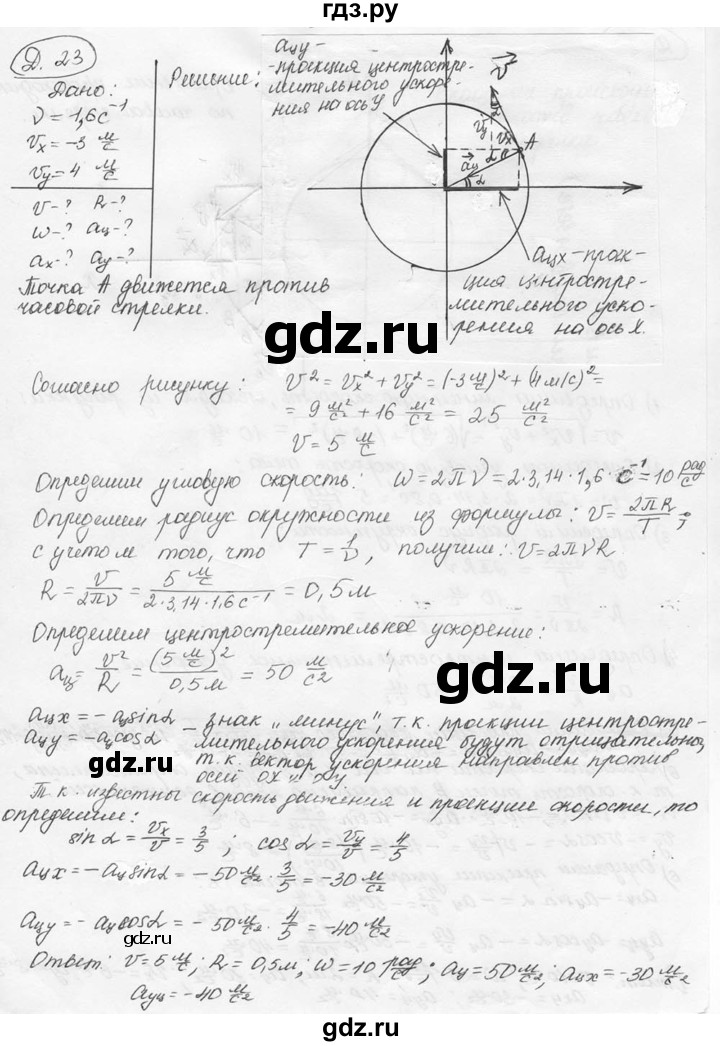 гдз.ру
Д. 23
Дано:
ν = 1,6 с⁻¹
vx = -3 м/с
vy = 4 м/с
v-? R-?
ω-? aц-?
ax-? ay-?
Решение:
aцy -
-проекция центростре-
мительного ускоре-
ния на ось У
v
vy
vx
α
A
aц
α
aцx - проек-
ция центростре-
мительного уско-
рения на ось X.
Точка А движется против
часовой стрелки.
gdz.ru
Согласно рисунку: v² = vx² + vy² = (-3 м/с)² + (4 м/с)² =
= 9 м²/с² + 16 м²/с² = 25 м²/с²
v = 5 м/с
gdz.ru
Определим угловую скорость: ω = 2πν = 2·3,14·1,6·с⁻¹ = 10 рад/с
Определим радиус окружности из формулы: v = 2πR/T;
с учетом того, что T = 1/ν, получим: v = 2πνR
R = v/2πν = 5 м/с / 2·3,14·1,6с⁻¹ = 0,5 м
gdz.ru
Определим центростремительное ускорение:
aц = v²/R = (5 м/с)²/0,5 м = 50 м/с²
aцx = - aц sinα - знак "минус", т.к. проекции центростре-
aцy = - aц cosα мительного ускорения будут отрицательны,
т.к. вектор ускорения направлен против
осей ОХ и ОУ
Т.к. известны скорость движения и проекции скорости, то
определим:
sinα = vx/v = 3/5; cosα = vy/v = 4/5
aцx = - aц sinα = - 50 м/с² · 3/5 = -30 м/с²
gdz.ru
aцy = - aц cosα = - 50 м/с² · 4/5 = -40 м/с²
gdz.ru
Ответ: v = 5 м/с; R = 0,5 м; ω = 10 рад/с; aц = 50 м/с²; aцx = -30 м/с²
aуц = -40 м/с²
gdz.ru